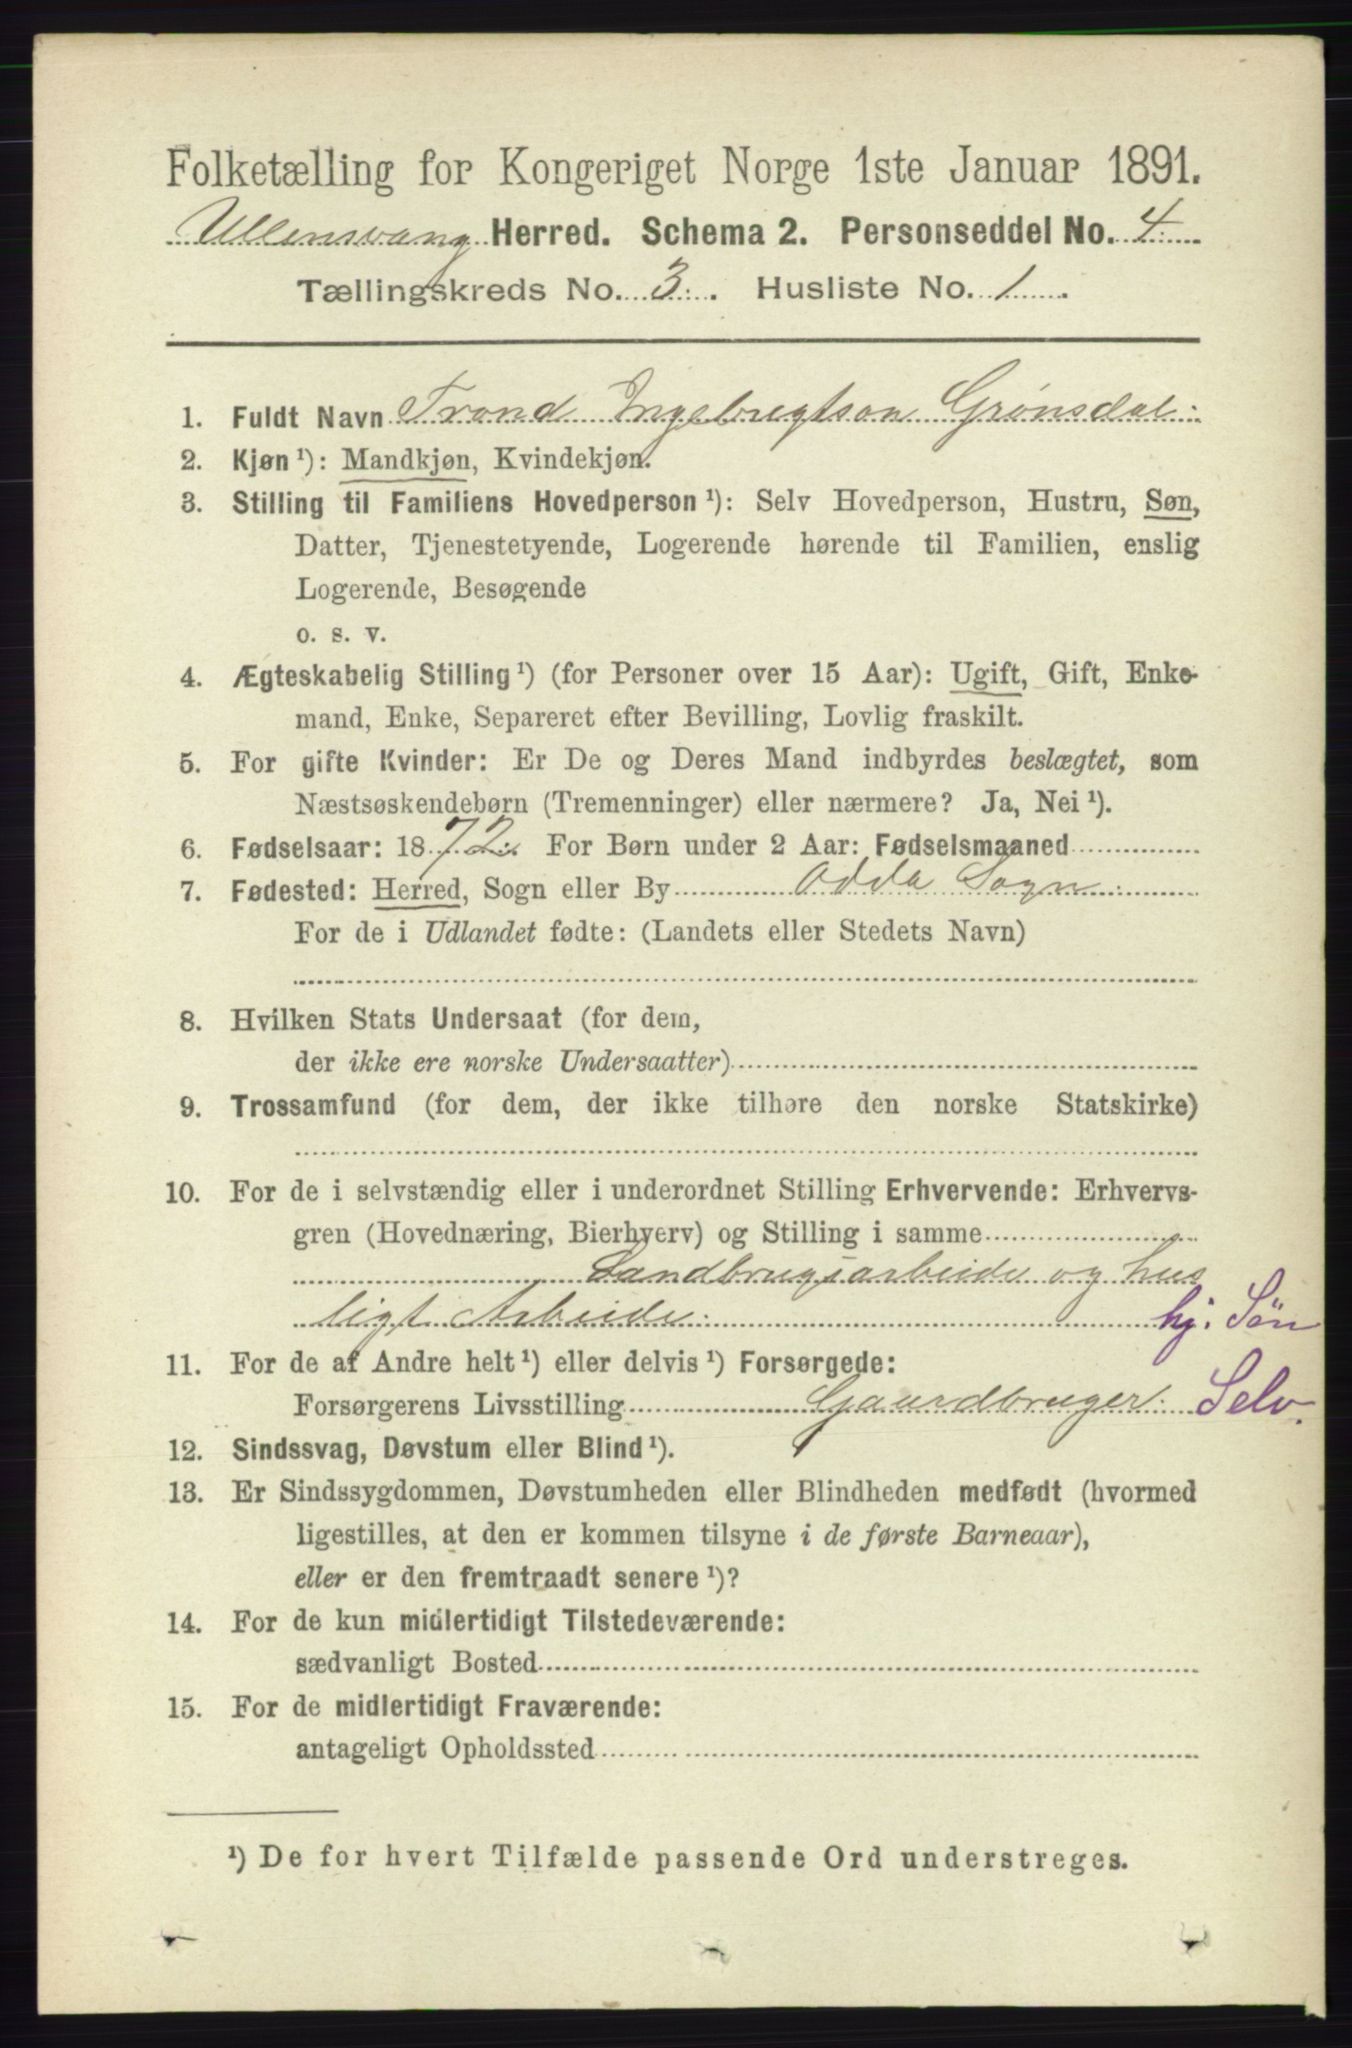 Folketælling for Kongeriget Norge 1ste Januar 1891.
Ullensvang Herred. Schema 2. Personseddel No. 4
Tællingskreds No. 3. Husliste No. 1.
1. Fuldt Navn Trond Ingebregtson Grønsdal
2. Kjøn¹): Mandkjøn, Kvindekjøn.
3. Stilling til Familiens Hovedperson¹): Selv Hovedperson, Hustru, Søn,
Datter, Tjenestetyende, Logerende hørende til Familien, enslig
Logerende, Besøgende
o. s. v.
4. Ægteskabelig Stilling¹) (for Personer over 15 Aar): Ugift, Gift, Enke-
mand, Enke, Separeret efter Bevilling, Lovlig fraskilt.
5. For gifte Kvinder: Er De og Deres Mand indbyrdes beslægtet, som
Næstsøskendebørn (Tremenninger) eller nærmere? Ja, Nei¹).
6. Fødselsaar: 1872. For Børn under 2 Aar: Fødselsmaaned
7. Fødested: Herred, Sogn eller By Odda Sogn
For de i Udlandet fødte: (Landets eller Stedets Navn)
8. Hvilken Stats Undersaat (for dem,
der ikke ere norske Undersaatter)
9. Trossamfund (for dem, der ikke tilhøre den norske Statskirke)
10. For de i selvstændig eller i underordnet Stilling Erhvervende: Erhvervs-
gren (Hovednæring, Bierhverv) og Stilling i samme
Landbrugsarbeide og hus
ligt Arbeide. hj. Sön
11. For de af Andre helt¹) eller delvis¹) Forsørgede:
Forsørgerens Livsstilling Gaardbruger. Selv.
12. Sindssvag, Døvstum eller Blind¹).
13. Er Sindssygdommen, Døvstumheden eller Blindheden medfødt (hvormed
ligestilles, at den er kommen tilsyne i de første Barneaar),
eller er den fremtraadt senere¹)?
14. For de kun midlertidigt Tilstedeværende:
sædvanligt Bosted
15. For de midlertidigt Fraværende:
antageligt Opholdssted
¹) De for hvert Tilfælde passende Ord understreges.